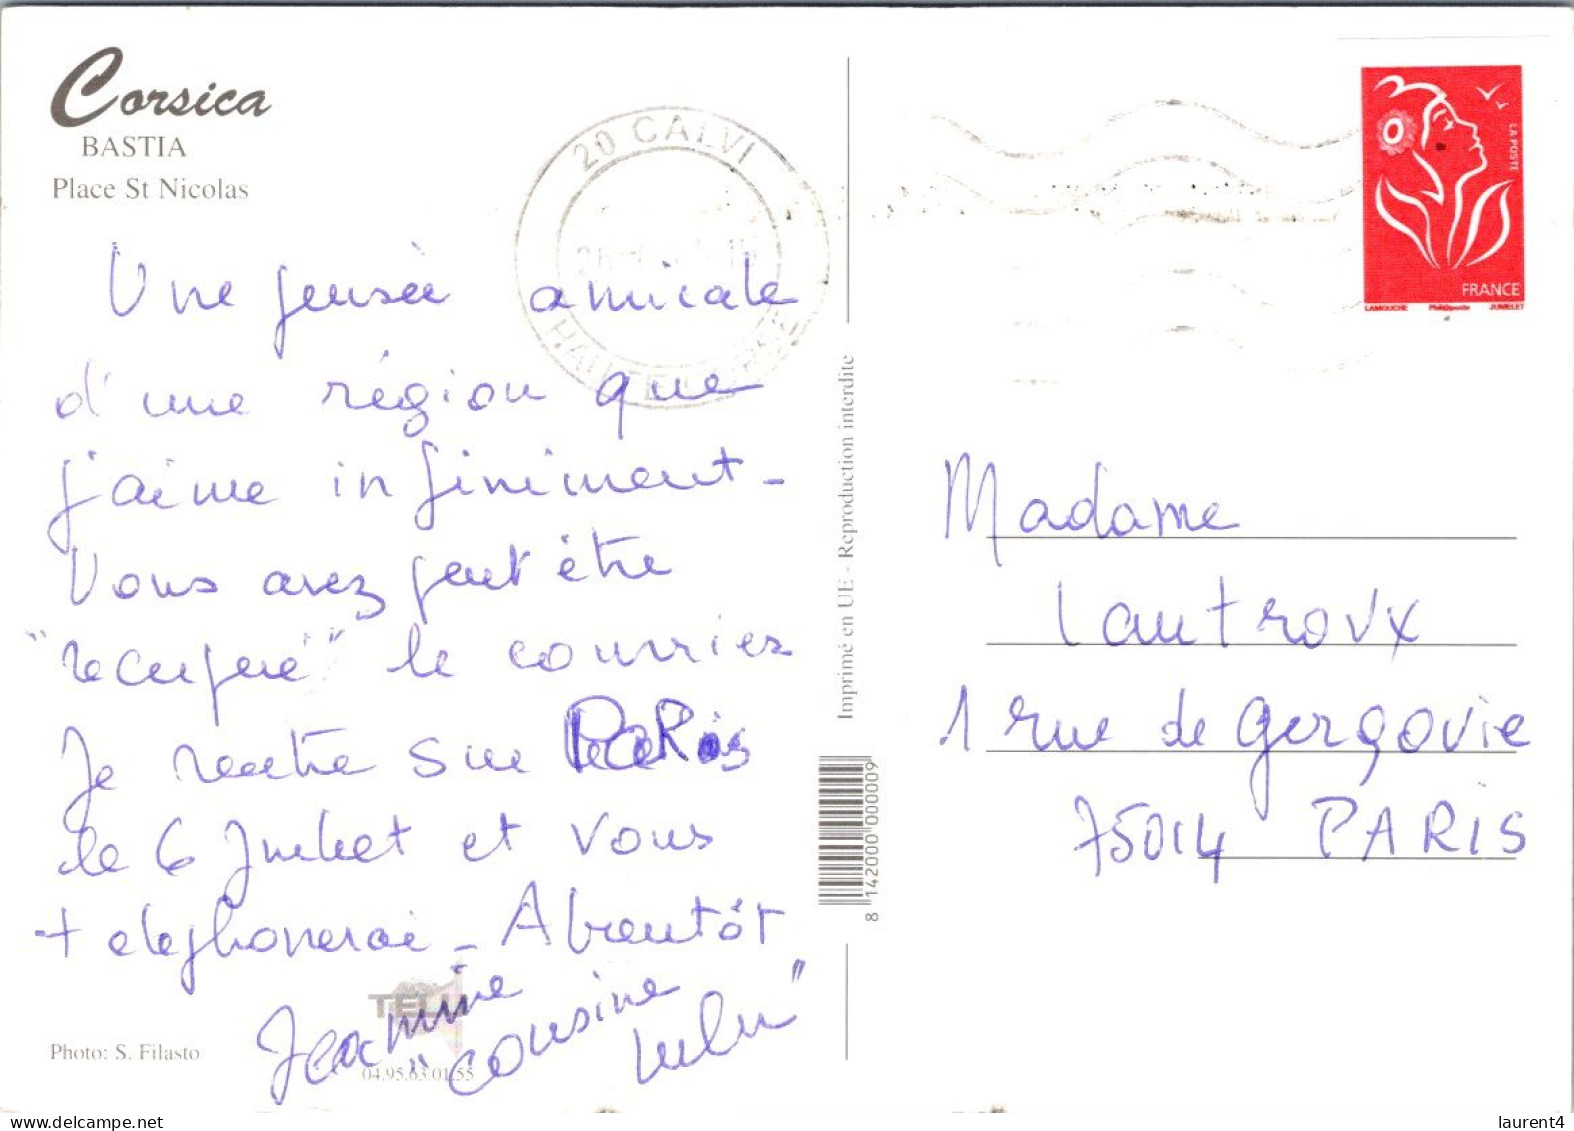 Corsica
BASTIA
Place St Nicolas
20 CALVI
HAUTE CORSE
LA POSTE
FRANCE
LAMOUCHE Phil@poste JUMELET
Une pensée amicale
d'une région que
j'aime infiniment -
Vous avez peut être
"recupéré" le courrier
Je rentre sur PARis
le 6 Juillet et vous
telephonerai - A bientôt
Jeannine
"cousine
lulu"
Imprimé en UE - Reproduction interdite
8 142000 000009
Madame
Lautroux
1 rue de Gergovie
75014 PARIS
Photo: S. Filasto
04.95.63.01.55
delcampe.net
laurent4